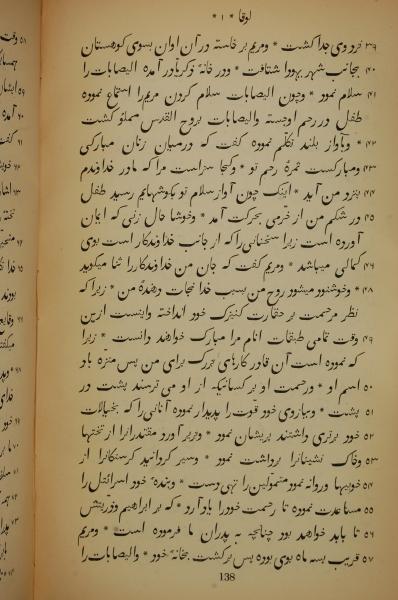 لوقا * ۱ *
۳۹ نزد وی جدا گشت * ومریم بر خاسته در آن اوان بسوی کوهستان
۴۰ بجانب شهر یهودا شتافت * ودر خانهٔ ذکریا در آمده الیصابات را
۴۱ سلام نمود * وچون الیصابات سلام کردن مریم را استماع نموده
طفل در رحم او جسته والیصابات بروح القدس مملو گشت
۴۲ * وبآواز بلند تکلّم نموده گفت که در میان زنان مبارکی
۴۳ ومبارکست ثمرهٔ رحم تو * وکجا سزاست مرا که مادر خداوندم
۴۴ بنزد من آید * اینک چون آواز سلام تو بگوشهایم رسید طفل
۴۵ در شکم من از خرمی بحرکت آمد * وخوشا حال زنی که ایمان
آورده است زیرا سخنانی را که از جانب خداوندکار است بوی
۴۶ کمالی میباشد * ومریم گفت که جان من خداوندکار را ثنا میگوید
۴۸ * وخوشنود میشود روح من بسبب خدا نجات دهندهٔ من * زیرا که
نظر مرحمت بر حقارت کنیزک خود انداخته واینست ازین
۴۹ وقت تمامی طبقات انام مرا مبارک خواهند دانست * زیرا
که نموده است آن قادر کارهای بزرک برای من پس منزّه باد
۵۰ اسم او * ورحمت او بر کسانیکه از او می ترسند پشت در
۵۱ پشت * وببازوی خود قوت را پدیدار نموده آنانی را که بخیالات
۵۲ خود برتری داشتند پریشان نمود * وزیر آورد مقتدران را از تختها
۵۳ وخاک نشینانرا برداشت نمود * وسیر گردانید گرسنگانرا از
۵۴ خوبیها وروانه نمود متمولین را تهی دست * وبندهٔ خود اسرائیل را
۵۵ مساعدت نموده تا رحمت خود را یاد آرد * که بر ابراهیم وذریتش
۵۶ تا بابد خواهد بود چنانچه به پدران ما فرموده است * ومریم
۵۷ قریب بسه ماه بوی بوده پس برگشت بخانهٔ خود * والیصابات را
138